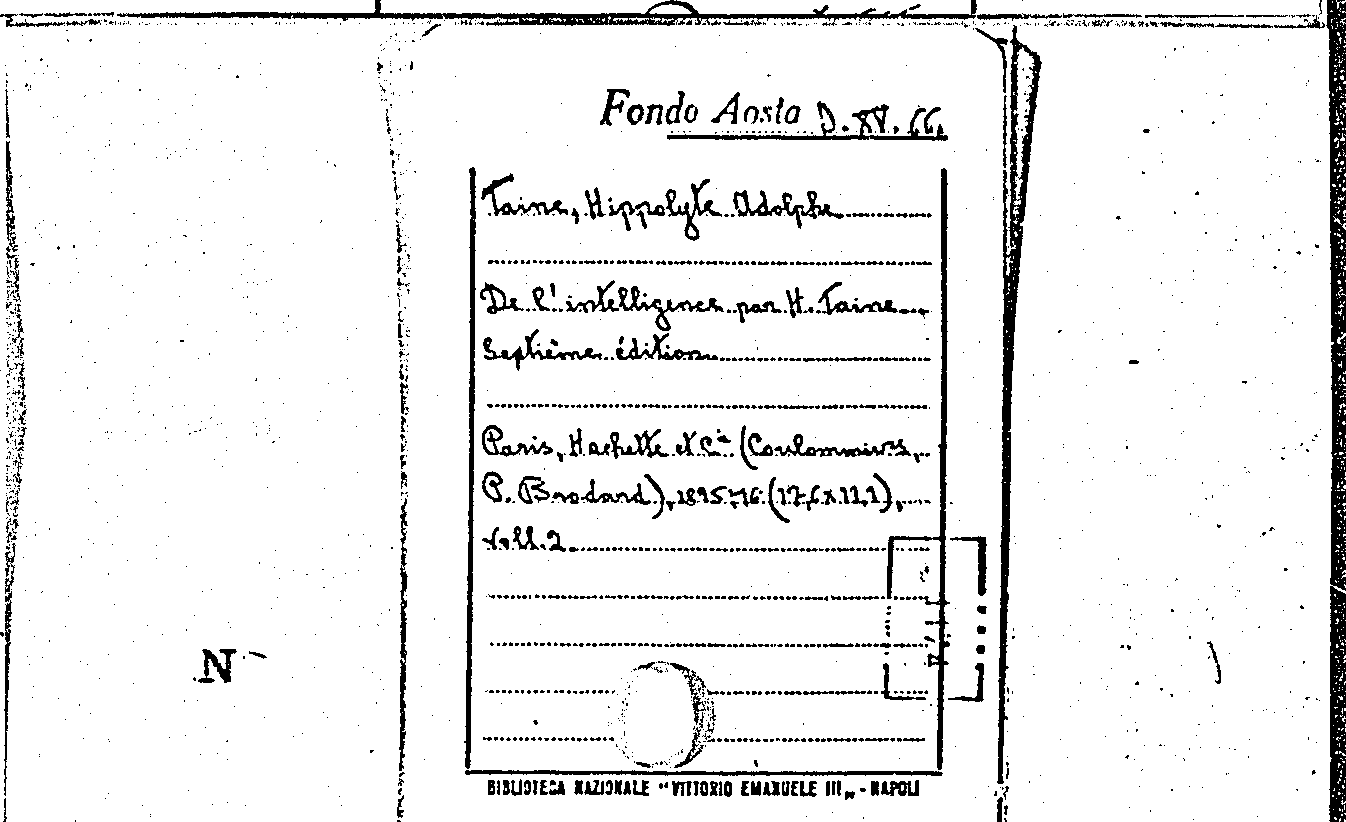 Fondo Aosta D. XV. 66.
Taine, Hippolyte Adolphe
De l'intelligence par H. Taine
Septième édition
Paris, Hachette et Cie (Coulommiers,
P. Brodard), 1895-96 (17,6x11,1),
voll. 2.
N
BIBLIOTECA NAZIONALE "VITTORIO EMANUELE III„ - NAPOLI